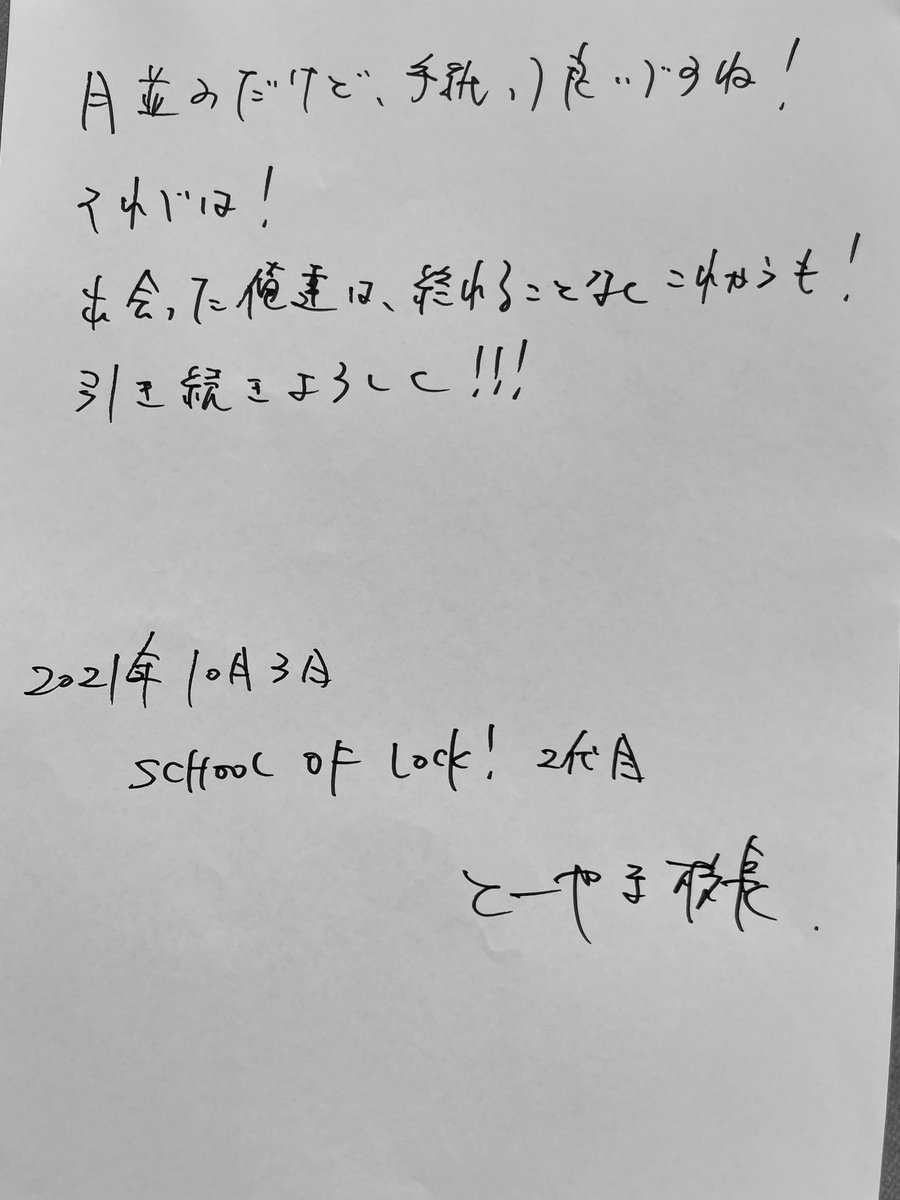 月並みだけど、手紙って良いですね!
それでは!
出会った俺達は、終わることなくこれからも!
引き続きよろしく!!!
2021年10月3日
SCHOOL OF LOCK! 2代目
とーやま校長.